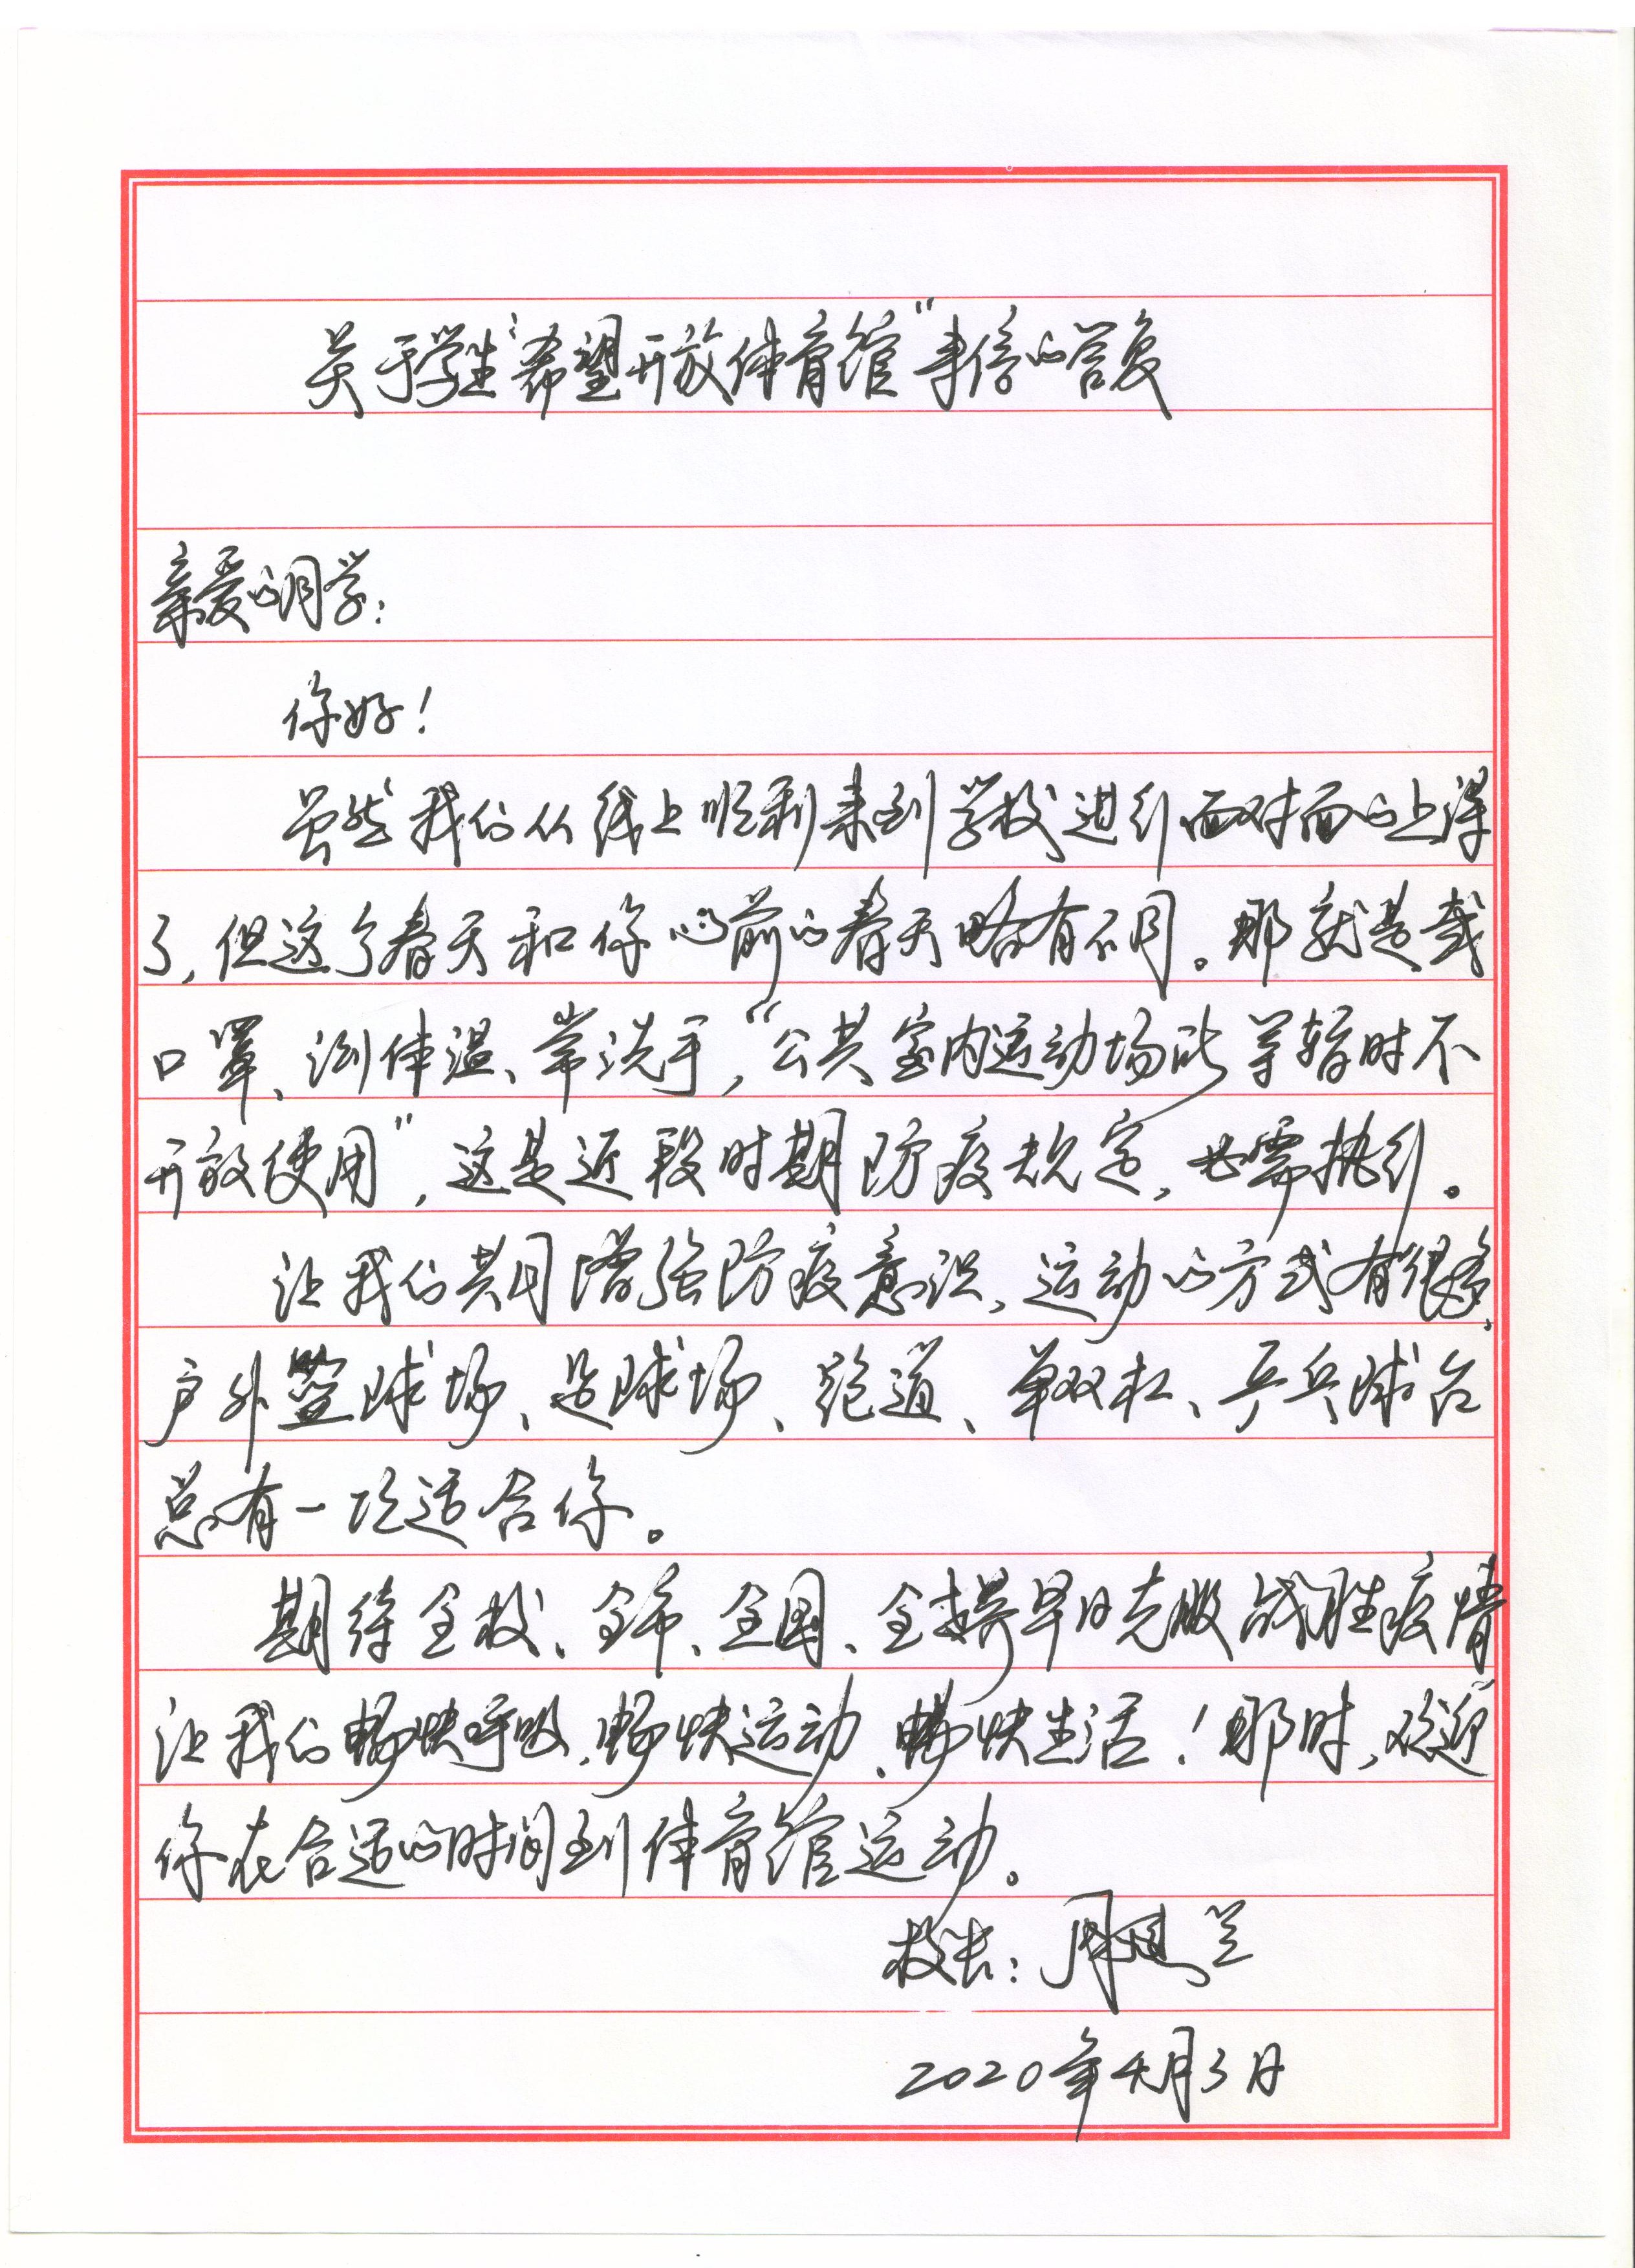 关于学生“希望开放体育馆”来信的答复
亲爱的同学：
你好！
虽然我们从线上顺利来到学校进行面对面的上课
了，但这个春天和你以前的春天略有不同。那就是戴
口罩、测体温、常洗手，“公共室内运动场所等暂时不
开放使用”，这是近段时期防疫规定，必需执行。
让我们共同增强防疫意识，运动的方式有很多，
户外篮球场、足球场、跑道、单双杠、乒乓球台
总有一项适合你。
期待全校、全市、全国、全世界早日克服战胜疫情
让我们畅快呼吸、畅快运动、畅快生活！那时，欢迎
你在合适的时间到体育馆运动。
校长：周
2020年4月3日